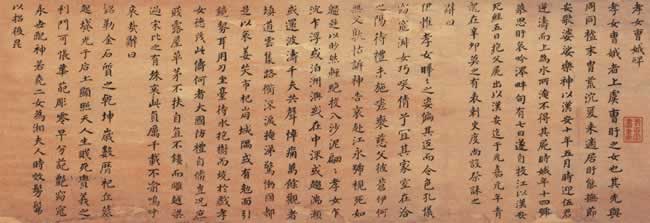 孝女曹娥碑
孝女曹娥者上虞曹盱之女也其先與
周同祖末胄荒沉爰來適居盱能撫節
安歌婆娑樂神以漢安二年五月時迎伍君
逆濤而上為水所淹不得其屍時娥年十四號
慕思盱哀吟澤畔旬有七日遂自投江
死經五日抱父屍出以漢安迄于元嘉元年青
龍在辛卯莫之有表度尚設祭誄之
辭曰
伊惟孝女曄曄之姿偏其返而令色孔儀
窈窕淑女巧笑倩兮宜其家室在洽
之陽待禮未施嗟喪慈父彼蒼伊何
無父孰怙訴神告哀赴江永號視死如
歸是以眇然輕絕投入沙泥翩翩孝女乍
沉乍浮或泊洲嶼或在中流或趨湍瀨
或還波濤千夫失聲悼痛萬餘觀者
填道雲集路衢流淚掩涕驚慟國都
是以哀姜哭市杞崩城隅或有尅面引
鏡剺耳用刀坐臺待水抱樹而燒於戲孝
女德茂此儔何者大國防禮自修豈況庶
賤露屋草茅不扶自直不鏤而雕越梁
過宋比之有殊哀此貞厲千載不渝嗚呼
哀哉辭曰
銘勒金石質之乾坤歲數曆祀丘墓
起墳光于后土顯照天人生賤死貴義之
利門何悵華落雕零早分葩艷窈窕
永世配神若堯二女為湘夫人時效髣髴
以招後昆